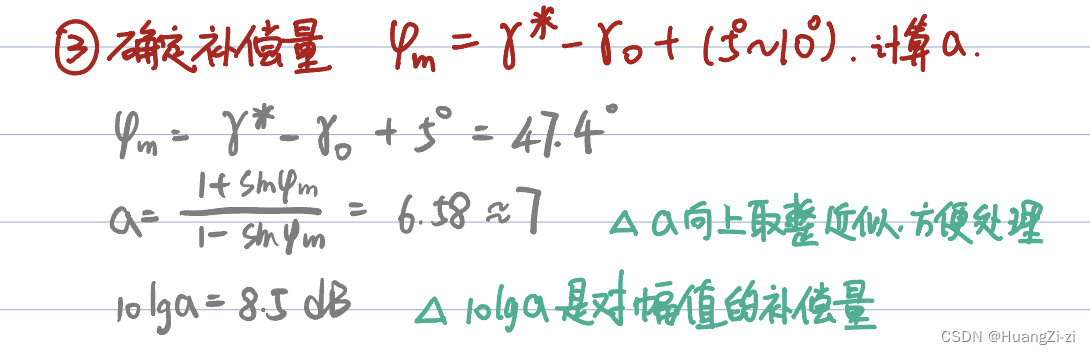 ③确定补偿量 φm = γ* - γ0 + (5°~10°). 计算a.
φm = γ* - γ0 + 5° = 47.4°
a = (1 + sinφm) / (1 - sinφm) = 6.58 ≈ 7 △ a向上取整近似.方便处理
10lga = 8.5 dB △ 10lga是对幅值的补偿量
CSDN @HuangZi-zi